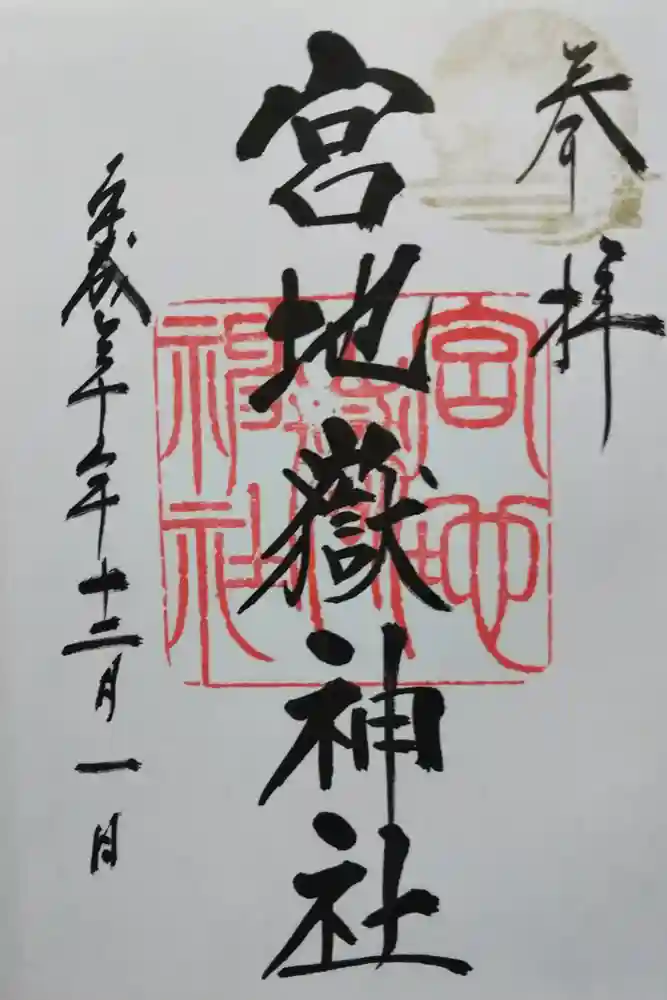 奉拝
宮地嶽神社
平成三十年十二月一日
宮地
嶽
神社